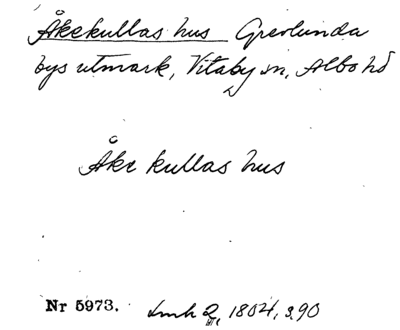 Åkekullas hus Grevlunda
bys utmark, Vitaby sn, Albo hd
Åke kullas hus
Nr 5973. Lmh 2, 1804, s. 90